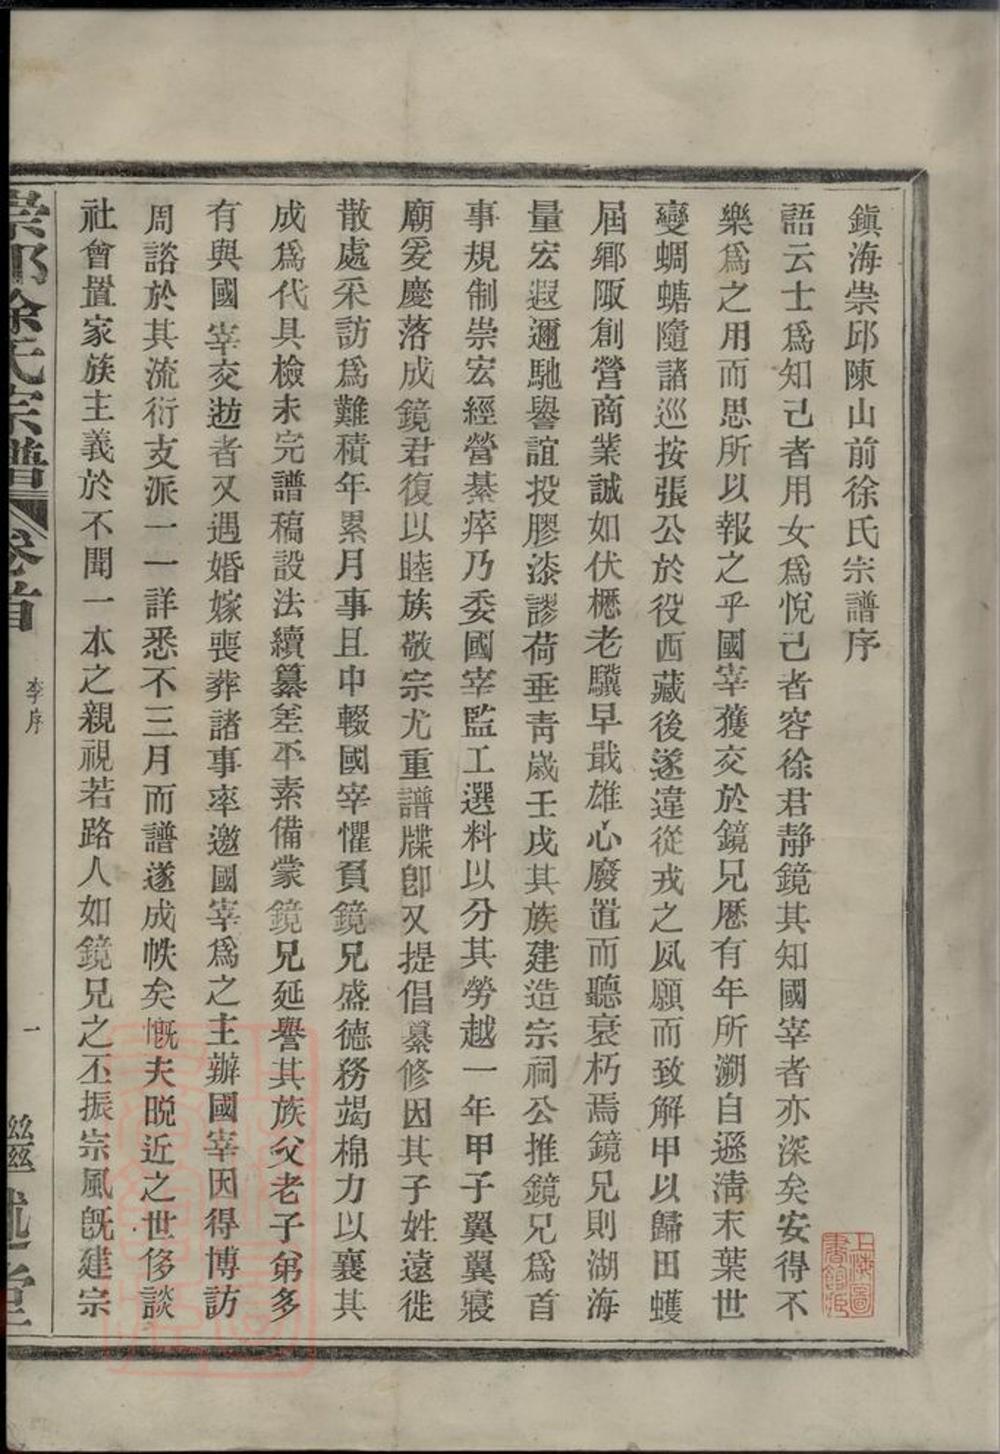 鎮海崇邱陳山前徐氏宗譜序
語云士爲知己者用女爲悅己者容徐君靜鏡其知國宰者亦深矣安得不
樂爲之用而思所以報之乎國宰獲交於鏡兄歷有年所溯自遜淸末葉世
變蜩螗隨諸巡按張公於役西藏後遂違從戎之夙願而致解甲以歸田蠖
屈鄕陬創營商業誠如伏櫪老驥早戢雄心廢置而聽衰朽焉鏡兄則湖海
量宏遐邇馳譽誼投膠漆謬荷垂靑歲壬戌其族建造宗祠公推鏡兄爲首
事規制崇宏經營綦瘁乃委國宰監工選料以分其勞越一年甲子翼翼寢
廟爰慶落成鏡君復以睦族敬宗尤重譜牒卽又提倡纂修因其子姓遠徙
散處采訪爲難積年累月事且中輟國宰懼負鏡兄盛德務竭棉力以襄其
成爲代具檢未完譜稿設法續纂差平素備蒙鏡兄延譽其族父老子弟多
有與國宰交遊者又遇婚嫁喪葬諸事率邀國宰爲之主辦國宰因得博訪
周諮於其流衍支派一一詳悉不三月而譜遂成帙矣慨夫晚近之世侈談
社會置家族主義於不聞一本之親視若路人如鏡兄之丕振宗風旣建宗
崇邱徐氏宗譜
卷首
李序
一
繼述堂
上海圖書館藏